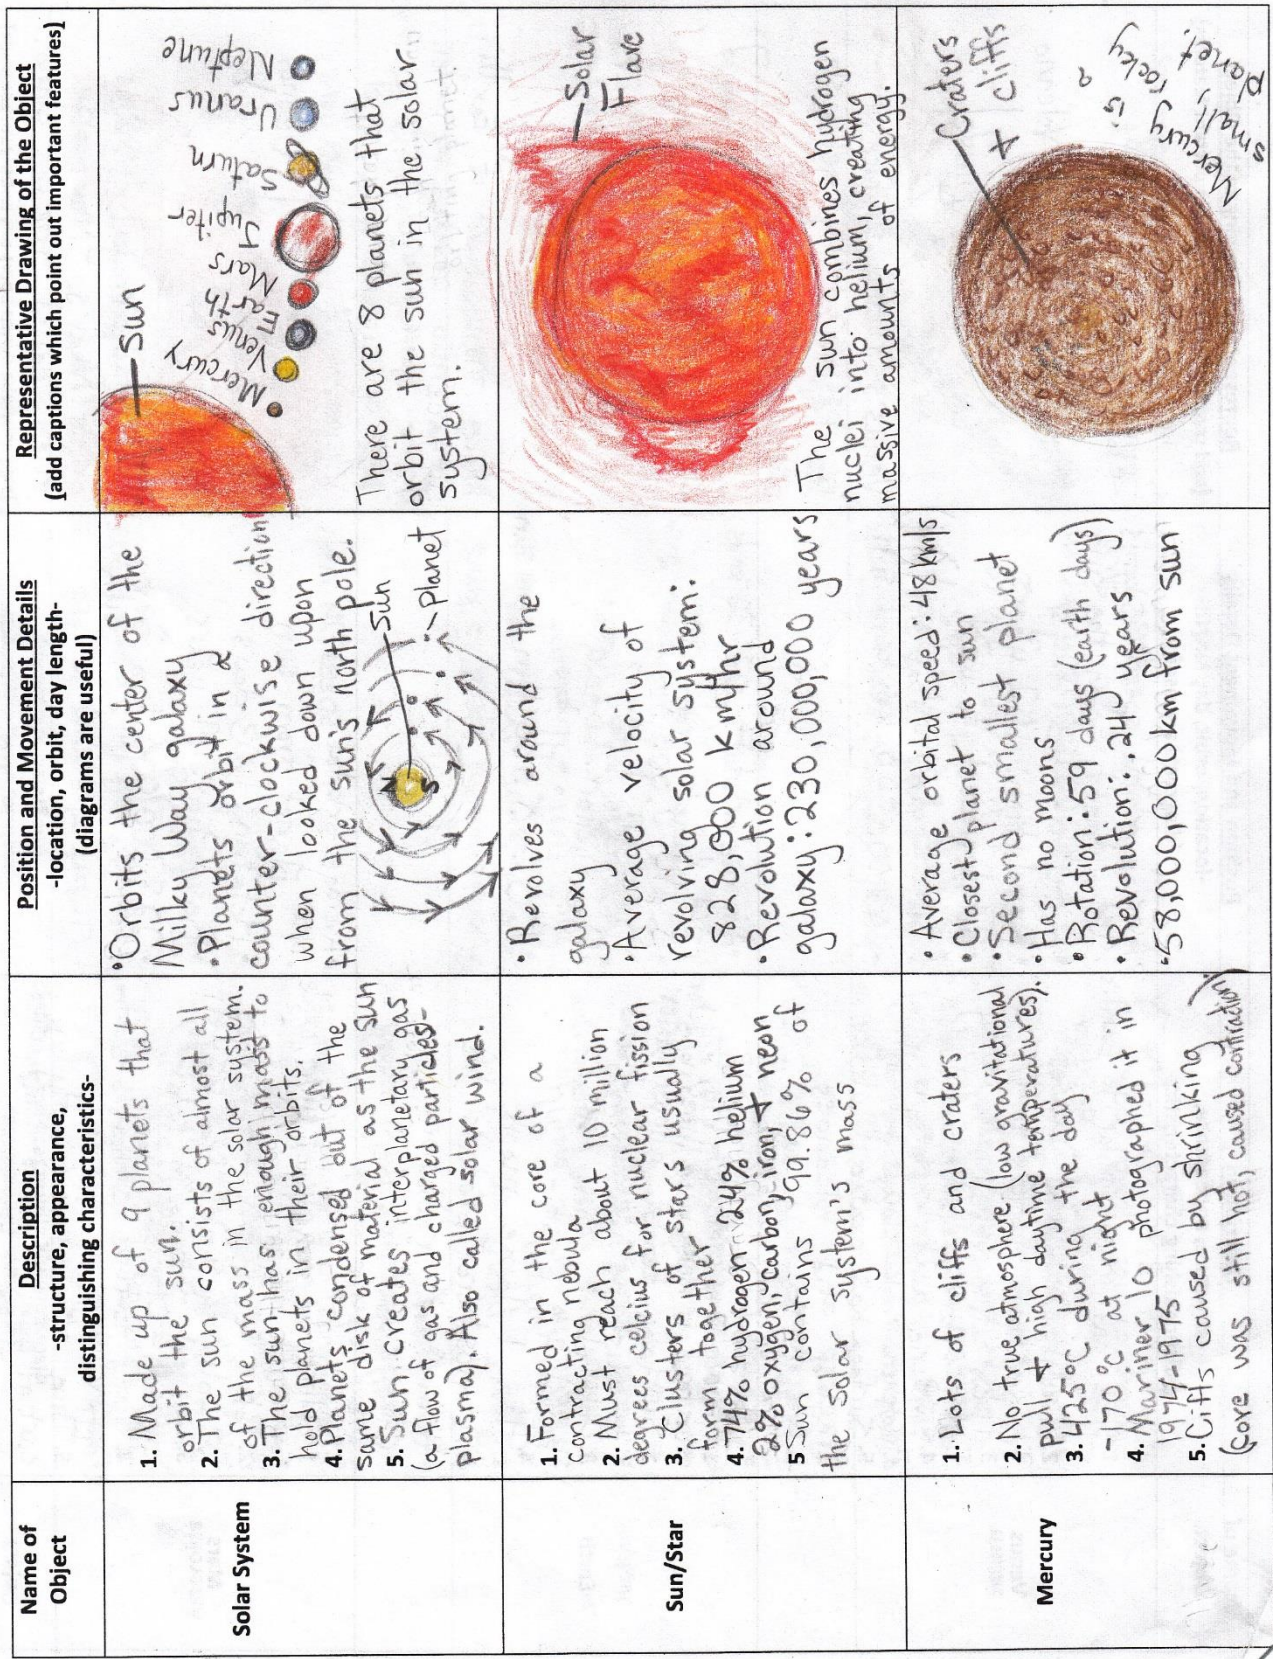 Name of
Object
Description
-structure, appearance,
distinguishing characteristics-
Position and Movement Details
-location, orbit, day length-
(diagrams are useful)
Representative Drawing of the Object
(add captions which point out important features)
Solar System
1. Made up of 9 planets that
orbit the sun.
2. The sun consists of almost all
of the mass in the solar system.
3. The sun has enough mass to
hold planets in their orbits.
4. Planets condensed out of the
same disk of material as the sun
5. Sun creates interplanetary gas
(a flow of gas and charged particles-
plasma). Also called solar wind.
• Orbits the center of the
Milky Way galaxy
• Planets orbit in a
counter-clockwise direction
when looked down upon
from the sun's north pole.
N
S
Sun
Planet
Sun
Mercury
Venus
Earth
Mars
Jupiter
Saturn
Uranus
Neptune
There are 8 planets that
orbit the sun in the solar
system.
Sun/Star
1. Formed in the core of a
contracting nebula
2. Must reach about 10 million
degrees celcius for nuclear fission
3. Clusters of stars usually
form together
4. 74% hydrogen 24% helium
2% oxygen, carbon, iron, + neon
5 Sun contains 99.86% of
the solar system's mass
• Revolves around the
galaxy
• Average velocity of
revolving solar system:
828,000 km/hr
• Revolution around
galaxy: 230,000,000 years
Solar
Flare
The sun combines hydrogen
nuclei into helium, creating
massive amounts of energy.
Mercury
1. Lots of cliffs and craters
2. No true atmosphere (low gravitational
pull + high daytime temperatures).
3. 425°C during the day
-170°C at night
4. Mariner 10 photographed it in
1974-1975
5. Cliffs caused by shrinking
(core was still hot, caused contraction)
• Average orbital speed: 48 km/s
• Closest planet to sun
• Second smallest planet
• Has no moons
• Rotation: 59 days (earth days)
• Revolution: .24 years
• 58,000,000 km from sun
Craters
+ cliffs
Mercury is a
small, rocky
planet.